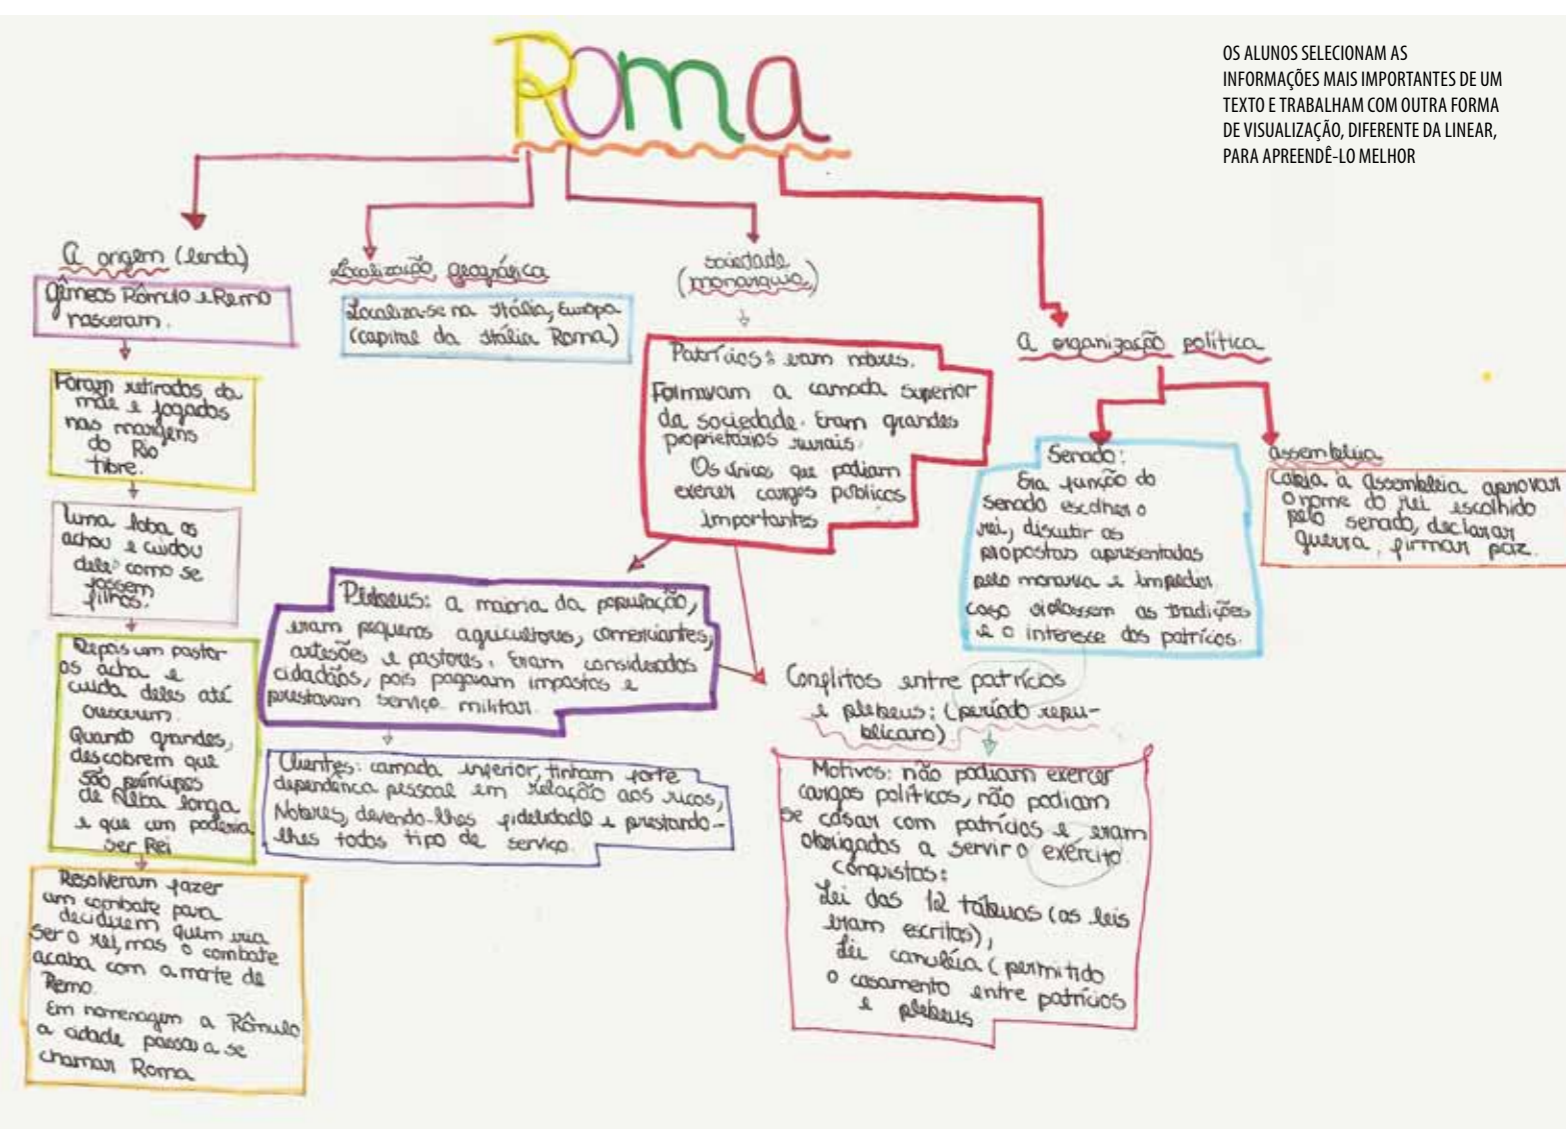 Roma
OS ALUNOS SELECIONAM AS
INFORMAÇÕES MAIS IMPORTANTES DE UM
TEXTO E TRABALHAM COM OUTRA FORMA
DE VISUALIZAÇÃO, DIFERENTE DA LINEAR,
PARA APREENDÊ-LO MELHOR
A origem (lenda)
Gêmeos Rômulo e Remo
nasceram.
Foram retirados da
mãe e jogados
nas margens
do Rio
tibre.
Uma loba os
achou e cuidou
deles como se
fossem
filhos.
Depois um pastor
os acha e
cuida deles até
crescerem.
Quando grandes,
descobrem que
são príncipes
de Alba longa
e que um poderia
ser Rei
Resolveram fazer
um combate para
decidirem quem iria
ser o rei, mas o combate
acaba com a morte de
Remo.
Em homenagem a Rômulo
a cidade passou a se
chamar Roma
Localização geográfica
Localiza-se na Itália, Europa
(capital da Itália Roma)
sociedade
(monarquia)
Patrícios: eram nobres.
Formavam a camada superior
da sociedade. Eram grandes
proprietários rurais.
Os únicos que podiam
exercer cargos públicos
importantes
Plebeus: a maioria da população,
eram pequenos agricultores, comerciantes,
artesões e pastores. Eram considerados
cidadãos, pois pagavam impostos e
prestavam serviço militar.
Clientes: camada inferior, tinham forte
dependência pessoal em relação aos ricos,
Nobres, devendo-lhes fidelidade e prestando-
lhes todos tipo de serviço.
Conflitos entre patrícios
e plebeus: (período repu-
blicano).
Motivos: não podiam exercer
cargos políticos, não podiam
se casar com patrícios e eram
obrigados a servir o exército
conquistas:
Lei das 12 tábuas (as leis
eram escritas),
Lei canuléia (permitido
o casamento entre patrícios
e plebeus
A organização política
Senado:
Era função do
senado escolher o
rei, discutir as
propostas apresentadas
pelo monarca e impedir
caso violassem as tradições
e o interesse dos patrícos.
assembleia
Cabia à assembleia aprovar
o nome do rei escolhido
pelo senado, declarar
guerra, firmar paz.